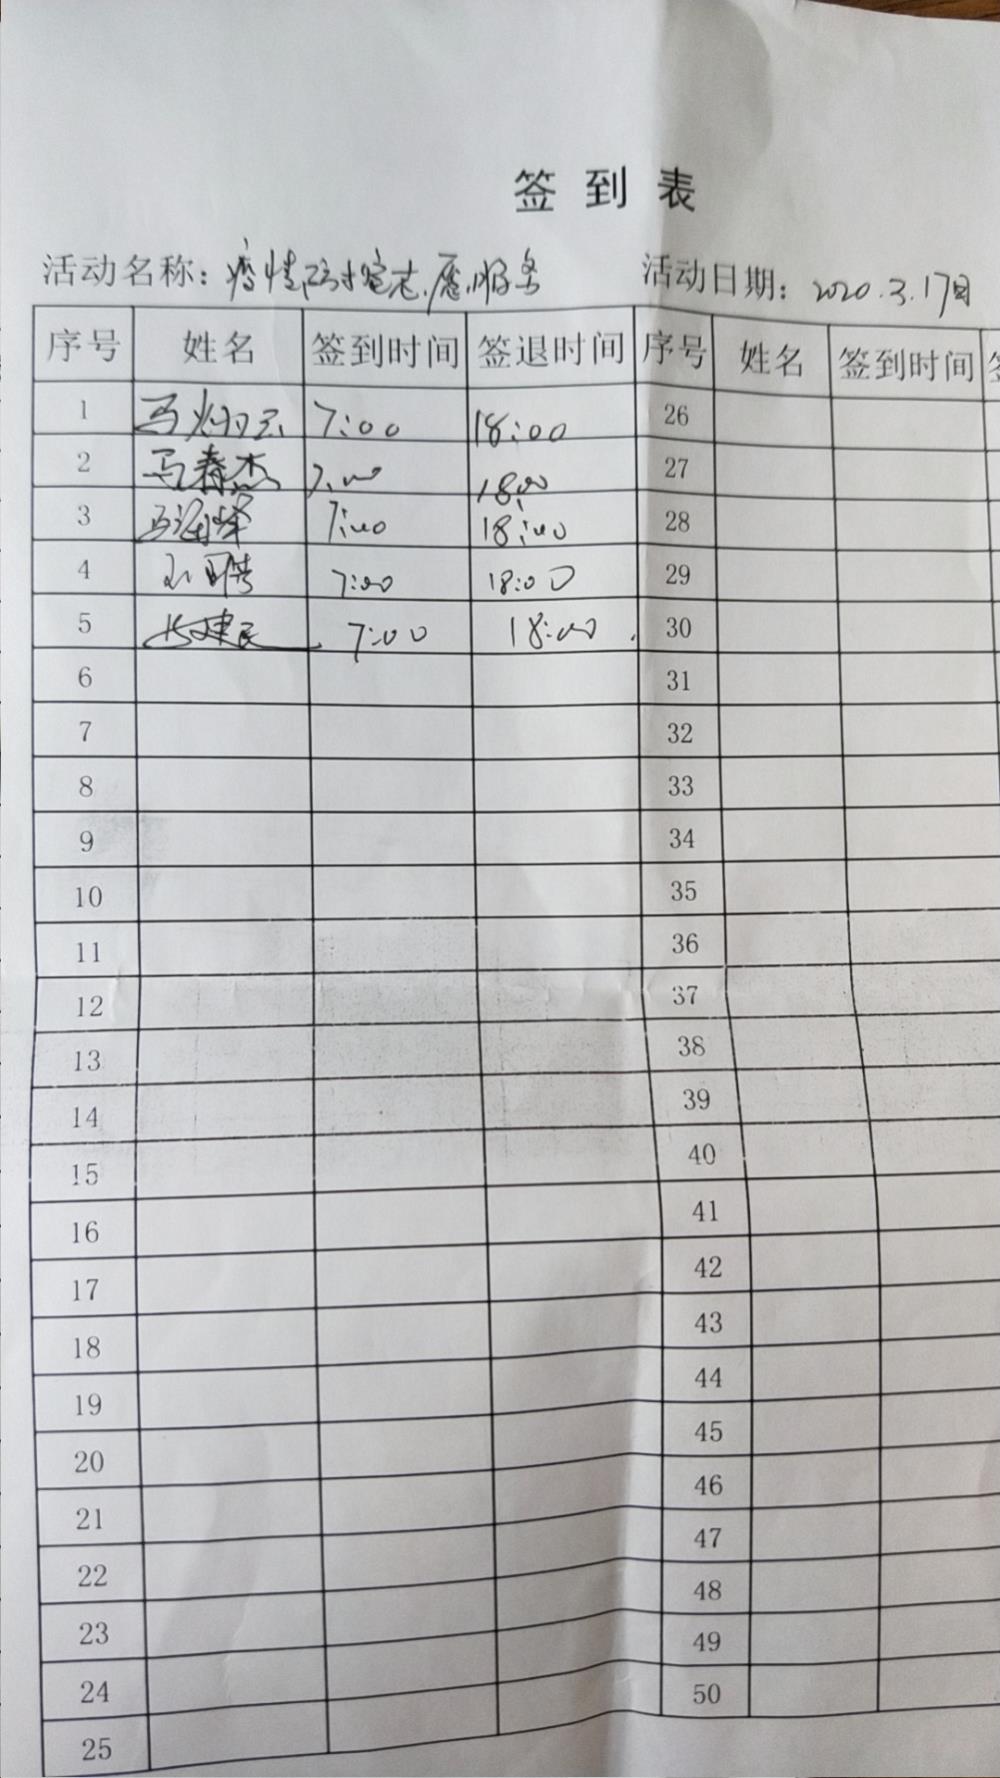 签到表
活动名称：疫情防控志愿服务 活动日期：2020.3.17日
序号 姓名 签到时间 签退时间 序号 姓名 签到时间 签
1 马 7:00 18:00 26
2 马春杰 7:00 18:00 27
3 马海峰 7:00 18:00 28
4 7:00 18:00 29
5 建民 7:00 18:00 30
6 31
7 32
8 33
9 34
10 35
11 36
12 37
13 38
14 39
15 40
16 41
17 42
18 43
19 44
20 45
21 46
22 47
23 48
24 49
25 50